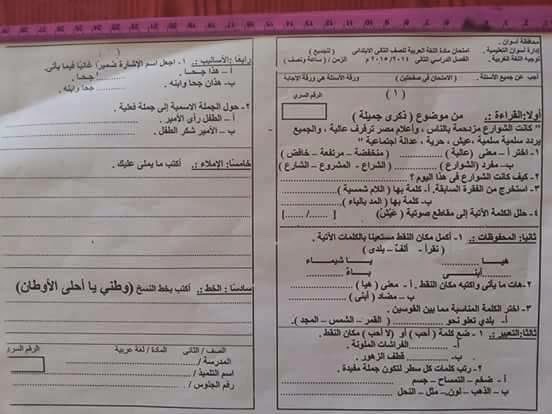 محافظة أسوان .
إدارة أسوان التعليمية .
توجيه اللغة العربية .
امتحان مادة اللغة العربية للصف الثانى الابتدائى ( للجميع )
الفصل الدراسى الثانى ٢٠١٤/ ٢٠١٥ م الزمن / ( ساعة ونصف )
أجب عن جميع الأسئلة . ( الامتحان فى صفحتين ) ورقة الأسئلة هى ورقة الإجابة
( ١ ) الرقم السرى
أولا:القراءة: من موضوع ( ذكرى جميلة )
" كانت الشوارع مزدحمة بالناس ، وأعلام مصر ترفرف عالية ، والجميع
يردد سلمية سلمية ،عيش ، حرية ، عدالة اجتماعية "
١- اختر أ – معنى (عالية ) ( منخفضة – مرتفعة – خافض )
ب- مفرد (الشوارع ) ( الشراع - المشروع – الشارع )
٢- كيف كانت الشوارع فى هذا اليوم ؟
٣- استخرج من الفقرة السابقة. أ- كلمة بها ( اللام شمسية )
ب- كلمة بها (المد بالياء )
٤- حلل الكلمة الآتية إلى مقاطع صوتية ( عَيْشٌ ) [ ....... / ...... ]
ثانيا: المحفوظات . ١- أكمل مكان النقط مستعينا بالكلمات الآتية .
( نقرأ - ألفٌ – بلدى )
هيـا ........ يا شيمـاء
........ أبنـى ........ بـاءٌ
٢-هات ما يأتى واكتبه مكان النقط . أ- معنى ( هيا )
ب – مضاد ( أبنى )
٣- اختر الكلمة المناسبة مما بين القوسين .
أ- بلدي تعلو نحو ........ ( القمر – الشمس – المجد ).
ثالثا:التعبير: ١- ضع كلمة ( أحب ) أو (لا أحب ) مكان النقط .
أ- ........ الفراشات الملونة .
ب- ........ قطف الزهور .
٢- رتب كلمات كل سطر لتكون جملة مفيدة .
أ – ضخم – التمساح – جسم
ب – الذهب – لون – مثل – النحل
رابعا: الأساليب : ١- اجعل اسم الإشارة ضميرا غائبا فيما يأتى.
أ – هذا جحـا . ........ جحـا .
ب- هذان جحا وابنه . ........ جحا وابنه .
٢- حول الجملة الاسمية إلى جملة فعلية .
أ – الطفل رأى الأمير .
ب – الأمير شكر الطفل .
خامسا: الإملاء : أكتب ما يملى عليك .
سادسا : الخط : أكتب بخط النسخ (وطني يا أحلى الأوطان)
الصف / الثانى المادة / لغة عربية الرقم السرى
المدرسة /
اسم التلميذ /
رقم الجلوس /